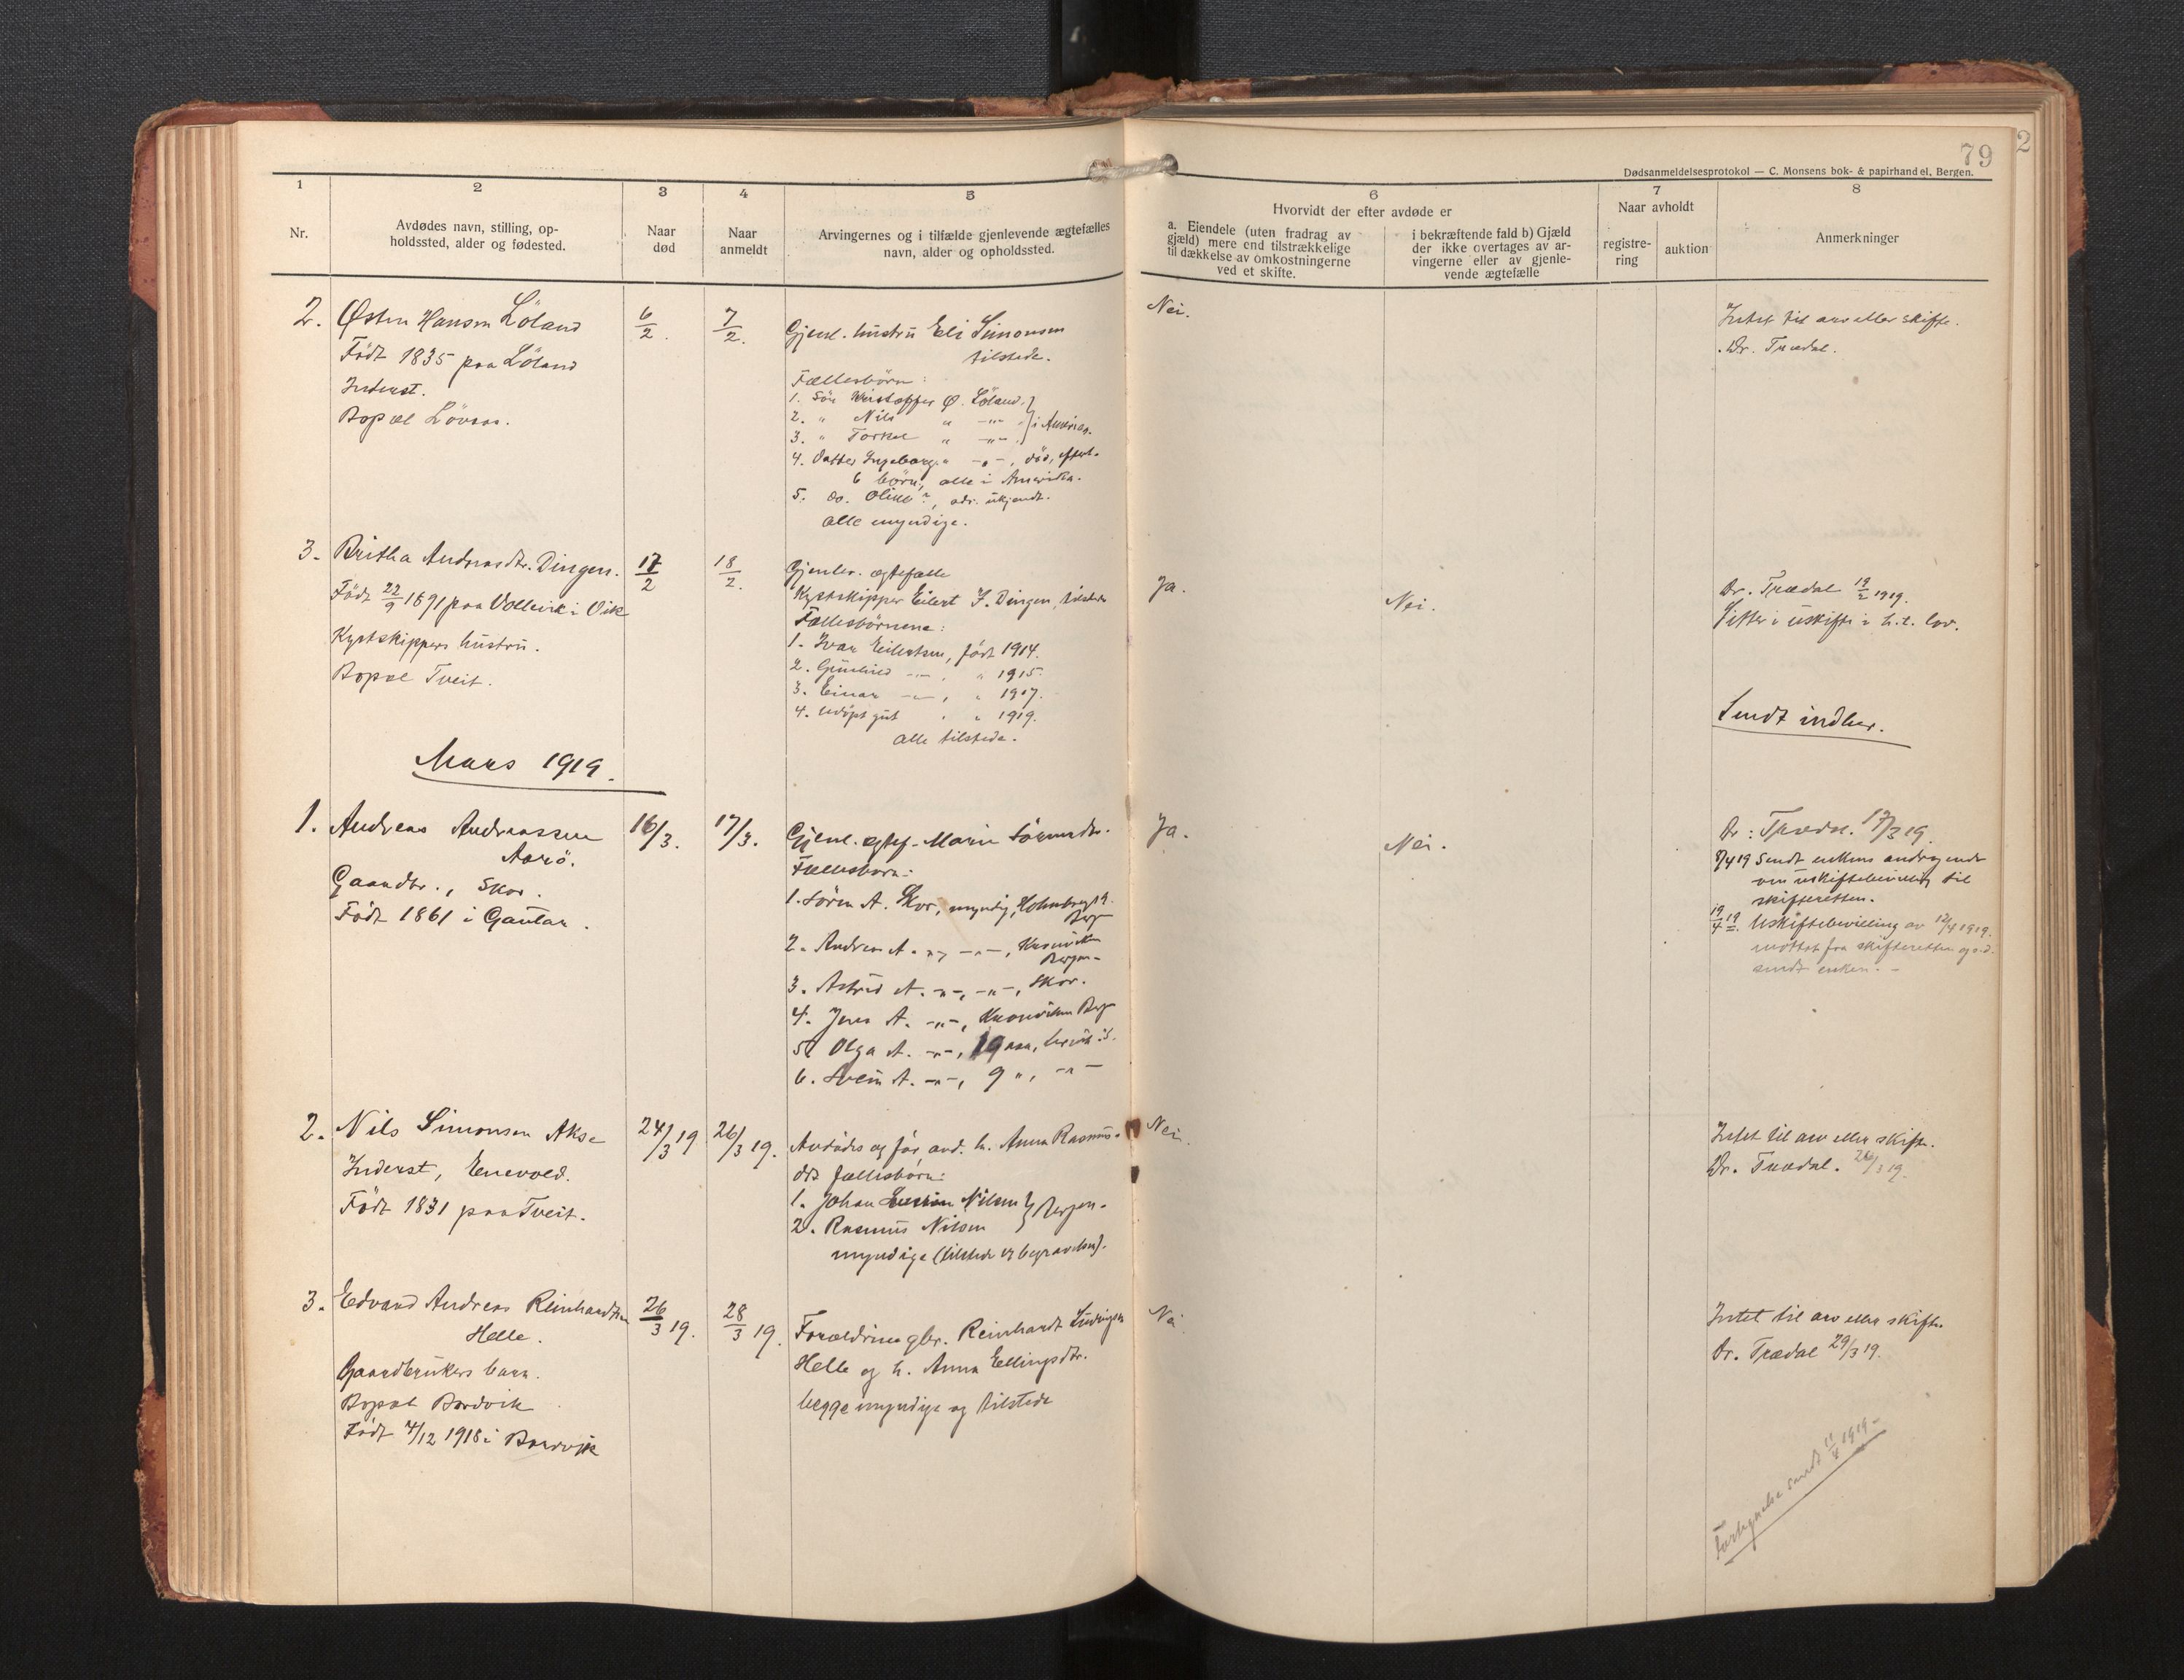 79
2
Dødsanmeldelsesprotokol — C. Monsens bok- & papirhandel, Bergen.
1
2
3
4
5
6
7
8
Nr.
Avdødes navn, stilling, op-
holdssted, alder og fødested.
Naar
død
Naar
anmeldt
Arvingernes og i tilfælde gjenlevende ægtefælles
navn, alder og opholdssted.
Hvorvidt der efter avdøde er
a. Eiendele (uten fradrag av
gjæld) mere end tilstrækkelige
til dækkelse av omkostningerne
ved et skifte.
i bekræftende fald b) Gjæld
der ikke overtages av ar-
vingerne eller av gjenle-
vende ægtefælle
Naar avholdt
registre-
ring
auktion
Anmerkninger
2. Østen Hansen Löland
Født 1835 paa Löland
Inderst.
Bopæl
6/2.
7/2.
Gjenl. hustru Eli Simonsen
tilstede.
Fællesbörn:
1. Sön Kristoffer Ø. Löland,
2. " Nils " -"-
3. " Torkel " -"- } i Amerika.
4. Datter Ingeborg " -"-, död, efterl.
6 börn, alle i Amerika.
5. do. adr. ukjendt.
alle myndige.
Nei.
Intet til arv eller skifte.
Dr. Trædal.
3. Britha Andreasdtr. Dingen.
Født 22/9 1891 paa i Vik
Kystskippers hustru.
Bopæl Tveit.
17/2
18/2.
Gjenlev. ægtefælle
Kystskipper Eilert J. Dingen, tilstede
Fællesbörnene:
1. Ivar Eilertsen, født 1914.
2. Gunhild -"-, " 1915.
3. Einar -"-, " 1917.
4. Udöpt gut , " 1919.
alle tilstede.
Ja.
Nei.
Dr. Trædal 19/2 1919.
Sitter i uskifte i h.t. lov.
Sendt indber.
Mars 1919.
1. Andreas Andreassen
Aarö.
Gaardbr., Skor.
Født 1861 i Gaular.
16/3.
17/3.
Gjenl. ægtef. Marie Sörensdtr.
Fællesbarn:
1. Sören A. Skor, myndig,
Berg
2. Andreas A. -"-, -"-,
Bergen.
3. Astrid A. -"-, -"-, Skor.
4. Jens A. -"-, Berg
5. Olga A. -"-, 19 aar,
6. Svein A. -"-, 9 ", -"-
Ja.
Nei.
Dr: Trædal. 17/3 19.
7/4 19 Sendt enkens andragende
om uskiftebevilling til
skifteretten.
19/4 19. Uskiftebevilling av 12/4 1919.
mottat fra skifteretten og s.d.
sendt enken. -
2. Nils Simonsen Akse
Inderst, Enevold.
Født 1831 paa Tveit.
24/3 19
26/3 19.
Avdödes og för avd. h. Anna Rasmus-
dtr fællesbörn:
1. Johan Nilsen
2. Rasmus Nilsen } Bergen.
myndige (tilstede v/ begravelsen).
Nei.
Intet til arv eller skifte.
Dr. Trædal. 26/3 19.
3. Edvard Andreas Reinhardtsen
Helle.
Gaardbrukers barn.
Bopæl Bordvik
Født 4/12 1918 i Bordvik
26/3 19.
28/3 19.
Forældrene gbr. Reinhardt Ludvigsen
Helle og h. Anna Ellingsdtr.
begge myndige og tilstede
Nei
Intet til arv eller skifte.
Dr. Trædal 29/3 19.
Fortegnelse sendt 11/4 1919.-